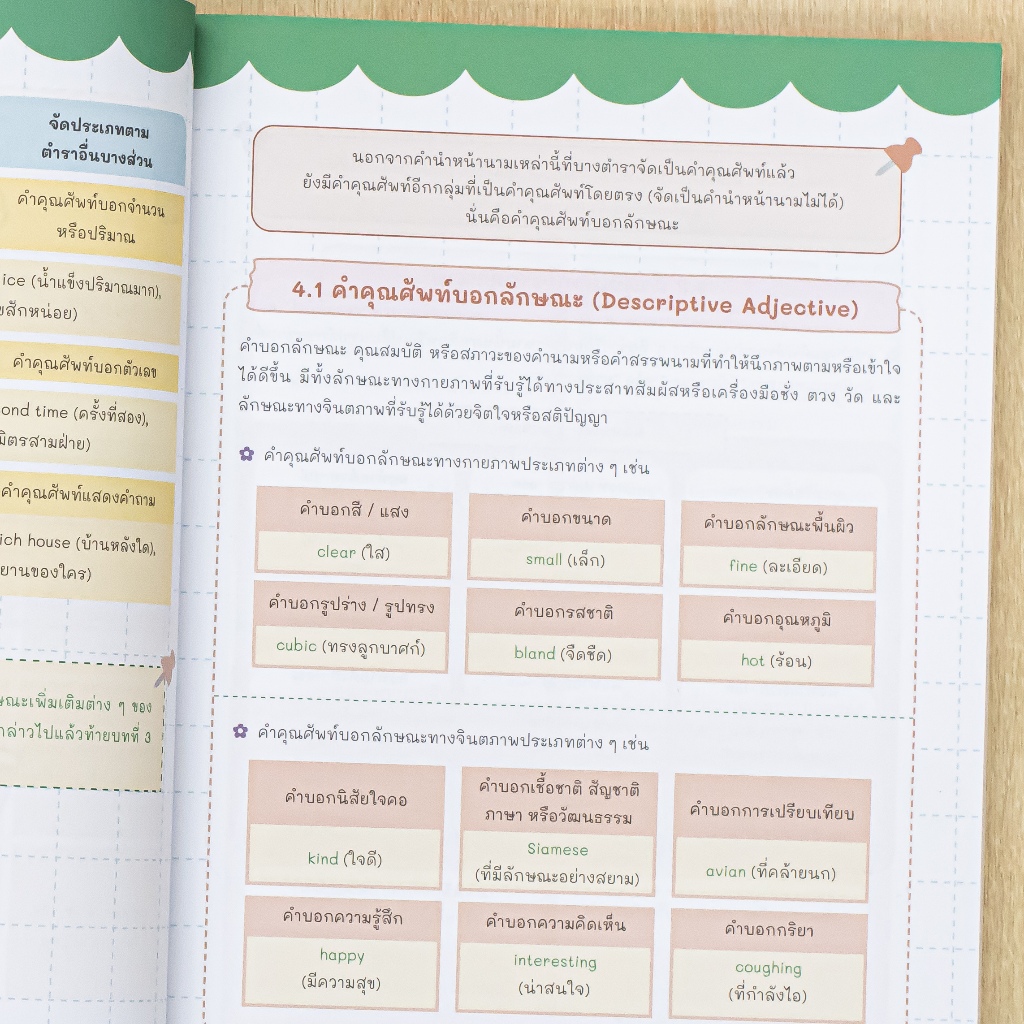 จัดประเภทตาม
ตำราอื่นบางส่วน
คำคุณศัพท์บอกจำนวน
หรือปริมาณ
ice (น้ำแข็งปริมาณมาก),
สักหน่อย)
คำคุณศัพท์บอกตัวเลข
ond time (ครั้งที่สอง),
มิตรสามฝ่าย)
คำคุณศัพท์แสดงคำถาม
ich house (บ้านหลังใด),
ยานของใคร)
ษณะเพิ่มเติมต่าง ๆ ของ
กล่าวไปแล้วท้ายบทที่ 3
นอกจากคำนำหน้านามเหล่านี้ที่บางตำราจัดเป็นคำคุณศัพท์แล้ว
ยังมีคำคุณศัพท์อีกกลุ่มที่เป็นคำคุณศัพท์โดยตรง (จัดเป็นคำนำหน้านามไม่ได้)
นั่นคือคำคุณศัพท์บอกลักษณะ
4.1 คำคุณศัพท์บอกลักษณะ (Descriptive Adjective)
คำบอกลักษณะ คุณสมบัติ หรือสภาวะของคำนามหรือคำสรรพนามที่ทำให้นึกภาพตามหรือเข้าใจ
ได้ดีขึ้น มีทั้งลักษณะทางกายภาพที่รับรู้ได้ทางประสาทสัมผัสหรือเครื่องมือชั่ง ตวง วัด และ
ลักษณะทางจินตภาพที่รับรู้ได้ด้วยจิตใจหรือสติปัญญา
คำคุณศัพท์บอกลักษณะทางกายภาพประเภทต่าง ๆ เช่น
คำบอกสี / แสง
clear (ใส)
คำบอกขนาด
small (เล็ก)
คำบอกลักษณะพื้นผิว
fine (ละเอียด)
คำบอกรูปร่าง / รูปทรง
cubic (ทรงลูกบาศก์)
คำบอกรสชาติ
bland (จืดชืด)
คำบอกอุณหภูมิ
hot (ร้อน)
คำคุณศัพท์บอกลักษณะทางจินตภาพประเภทต่าง ๆ เช่น
คำบอกนิสัยใจคอ
kind (ใจดี)
คำบอกเชื้อชาติ สัญชาติ
ภาษา หรือวัฒนธรรม
Siamese
(ที่มีลักษณะอย่างสยาม)
คำบอกการเปรียบเทียบ
avian (ที่คล้ายนก)
คำบอกความรู้สึก
happy
(มีความสุข)
คำบอกความคิดเห็น
interesting
(น่าสนใจ)
คำบอกกริยา
coughing
(ที่กำลังไอ)